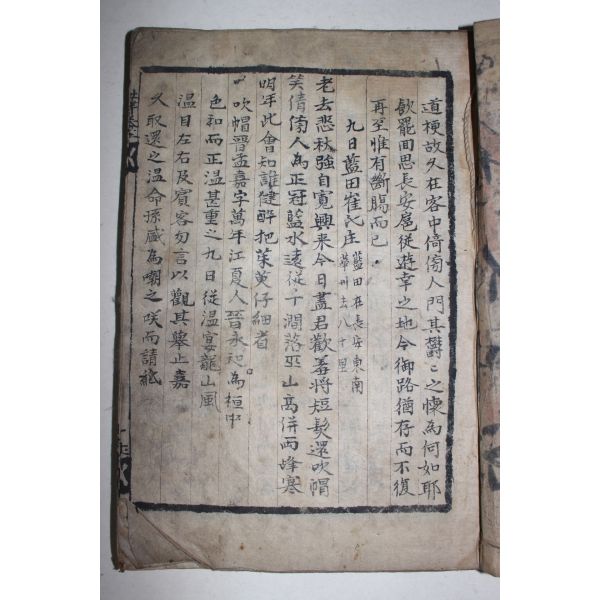 道梗故久在客中倚傍人門其欝〻之懷為何如耶
歓罷回思長安扈従遊幸之地今御路猶存而不復
再至惟有断腸而已
九日藍田崔氏庄 藍田在長安東南
華州去八十里
老去悲秋強自寛興来今日盡君歡羞將短髮還吹帽
笑倩傍人為正冠藍水遠從千澗落玉山高併兩峰寒
明年此會知誰健醉把茱萸仔細看
吹帽晉孟嘉字萬年江夏人晉永和為桓
色和而正温甚重之九日從温宴龍山風
温目左右及賓客勿言以觀其擧止嘉
久取還之温命孫盛為嘲之咲而請紙